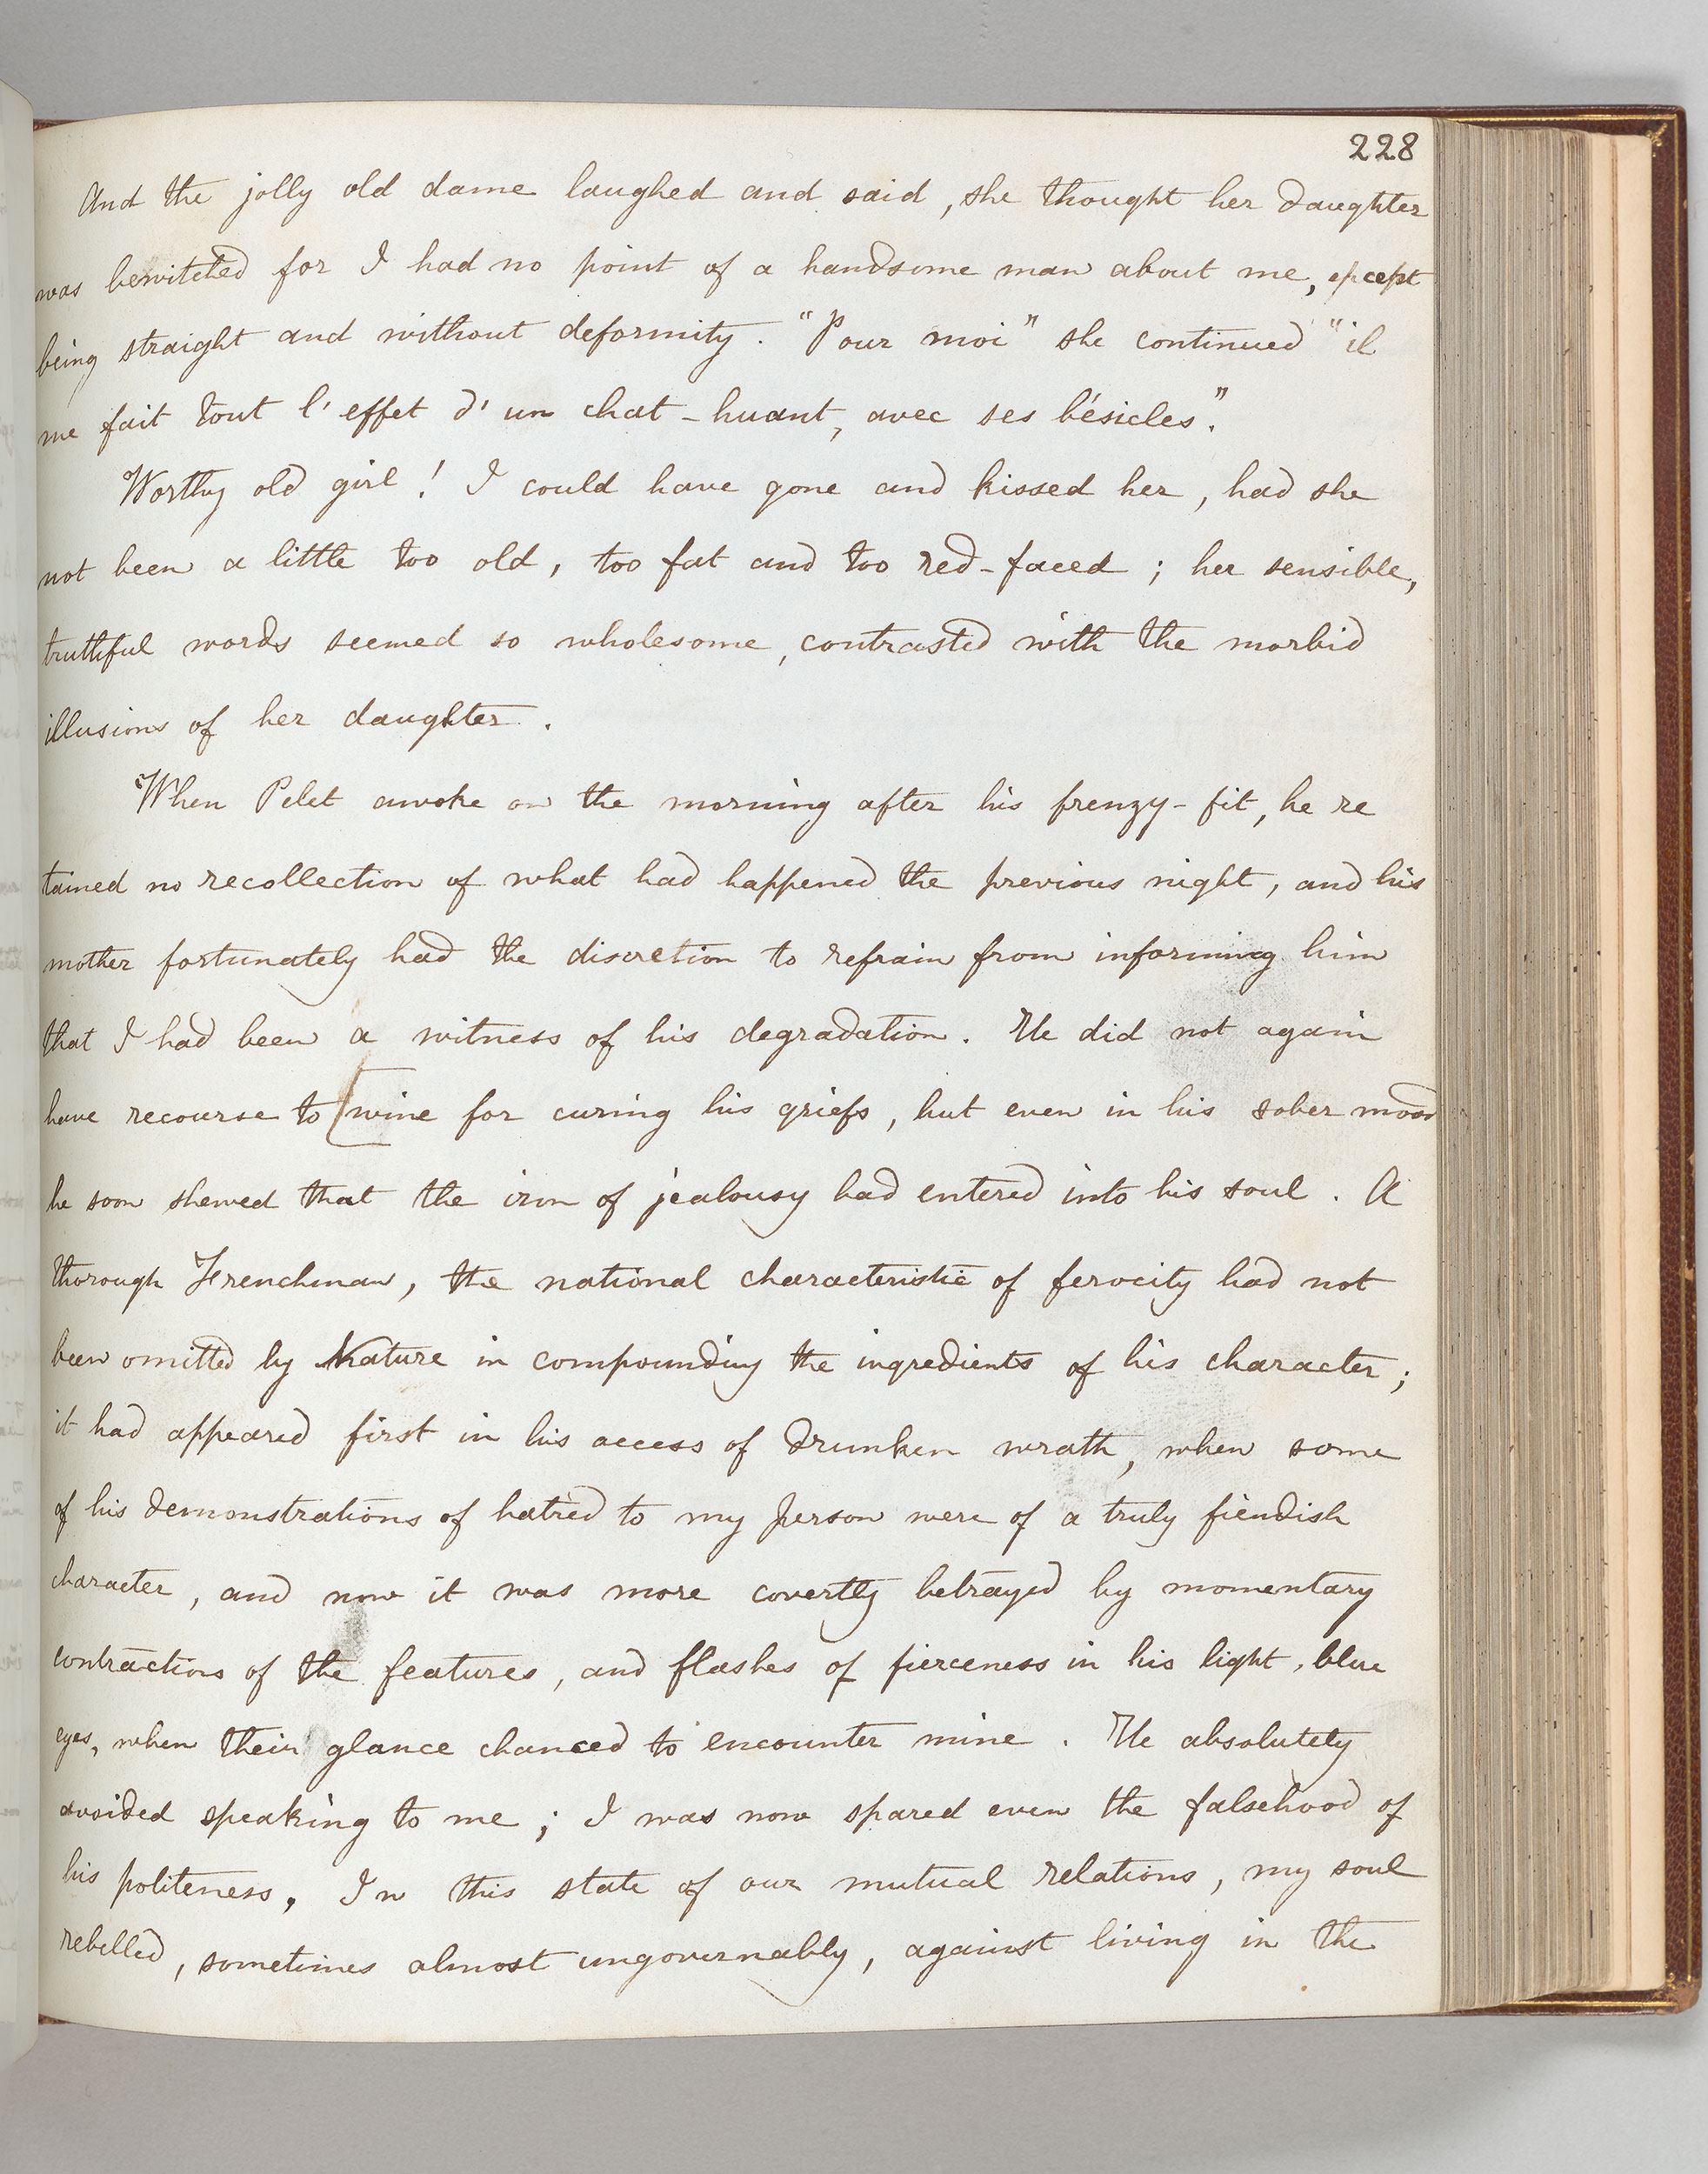 228
And the jolly old dame laughed and said, she thought her daughter
was bewitched for I had no point of a handsome man about me, except
being straight and without deformity. "Pour moi" she continued "il
me fait tout l'effet d'un chat-huant, avec ses bésicles".
Worthy old girl! I could have gone and kissed her, had she
not been a little too old, too fat and too red-faced; her sensible,
truthful words seemed so wholesome, contrasted with the morbid
illusions of her daughter.
When Pelet awoke on the morning after his frenzy-fit, he re
tained no recollection of what had happened the previous night, and his
mother fortunately had the discretion to refrain from informing him
that I had been a witness of his degradation. He did not again
have recourse to [wine for curing his griefs, but even in his sober mood
he soon shewed that the iron of jealousy had entered into his soul. A
thorough Frenchman, the national characteristic of ferocity had not
been omitted by Nature in compounding the ingredients of his character;
it had appeared first in his access of drunken wrath, when some
of his demonstrations of hatred to my person were of a truly fiendish
character, and now it was more covertly betrayed by momentary
contractions of the features, and flashes of fierceness in his light, blue
eyes, when their glance chanced to encounter mine. He absolutely
avoided speaking to me; I was now spared even the falsehood of
his politeness. In this state of our mutual relations, my soul
rebelled, sometimes almost ungovernably, against living in the